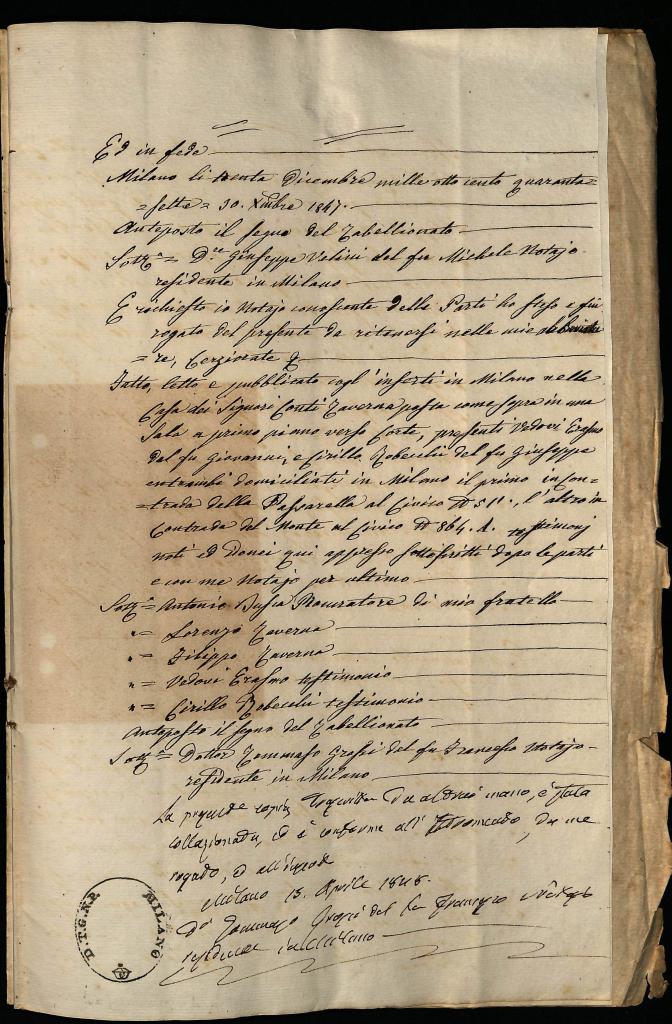 Ed in fede
Milano li trenta Dicembre mille otto cento quaranta=
=sette = 30. Xmbre 1847.
Anteposto il segno del Tabellionato
Sott.º = D.re Giuseppe Velini del fu Michele Notajo
residente in Milano
E richiesto io Notajo conoscente delle Parti ho steso e fui
rogato del presente da ritenersi nelle mie
= re, Cerziorate
Fatto, letto e pubblicato cogl' inserti in Milano nella
Casa dei Signori Conti Taverna posta come sopra in una
Sala a primo piano verso Corte, presenti Vedovi Erasmo
del fu Giovanni, e Cirillo Robecchi del fu Giuseppe
entrambi domiciliati in Milano il primo in Con=
=trada della Passarella al Civico N 511., l'altro in
Contrada del Monte al Civico N 864. A. testimonj
noti ed Idonei qui appresso sottoscritti dopo le parti
e con me Notajo per ultimo
Sott.º = Antonio Busca Procuratore di mio fratello
" = Lorenzo Taverna
" = Filippo Taverna
" = Vedovi Erasmo testimonio
" = Cirillo Robecchi testimonio
Anteposto il segno del Tabellionato
Sott.º = Dottor Tommaso Grossi del fu Francesco Notajo
residente in Milano
La presente copia da altrui mano, è stata
collazionata, ed è conforme all' da me
rogato, ed
Milano 15. Aprile 1848.
D.r Tommaso Grossi del fu Francesco Notajo
residente in Milano
D.T.G.N.R. MILANO